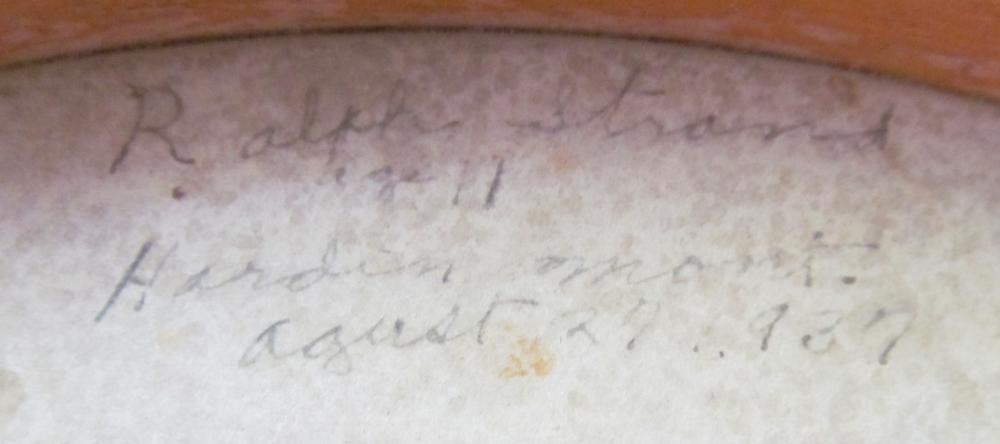 Ralph Strand
age 11
Hardin mont.
agust 27 1937